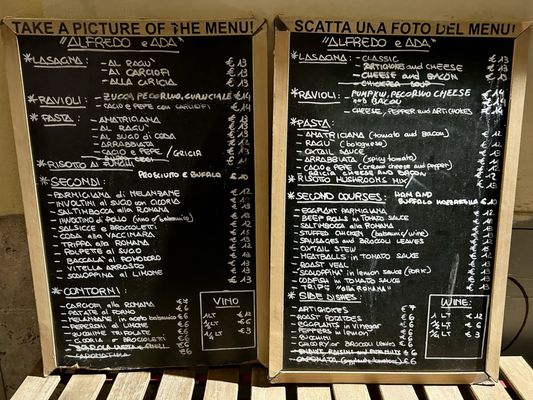 TAKE A PICTURE OF THE MENU!
"ALFREDO e ADA"
*LASAGNA: - AL RAGU' € 13
- AI CARCIOFI € 13
- ALLA GRICIA € 13
*RAVIOLI: - ZUCCA, PECORINO, GUANCIALE € 14
- CACIO e PEPE con CARCIOFI € 14
*PASTA: - AMATRICIANA € 13
- AL RAGU' € 13
- AL SUGO di CODA € 13
- ARRABBIATA € 13
- CACIO e PEPE / GRICIA € 13
*RISOTTO AI FUNGHI
PROSCIUTTO e BUFALA € 10
*SECONDI:
- PARMIGIANA di MELANZANE € 13
- INVOLTINI AL SUGO CON CICORIA € 13
- SALTIMBOCCA ALLA ROMANA € 13
- INVOLTINO di POLLO (vino o balsamico) € 13
- SALSICCE e BROCCOLETI € 13
- CODA alla VACCINARA € 13
- TRIPPA alla ROMANA € 13
- POLPETTE AL SUGO € 13
- BACCALA' al POMODORO € 13
- VITELLA ARROSTO € 13
- SCALOPPINA al LIMONE € 13
*CONTORNI:
- CARCIOFI alla ROMANA € 7
- PATATE al FORNO € 6
- MELANZANE in aceto balsamico € 6
- PEPERONI al LIMONE € 6
- ZUCCHINE TRIFOLATE € 6
- CICORIA e BROCCOLETI € 6
€ 6
- CAPONATINA € 6
VINO
1 LT € 12
1/2 LT € 6
1/4 LT € 3
SCATTA UNA FOTO DEL MENU!
"ALFREDO e ADA"
*LASAGNA: - CLASSIC € 13
- ARTICHOKES and CHEESE € 13
- CHEESE and BACON € 13
- CHICKEN SOUP
*RAVIOLI: - PUMPKIN, PECORINO CHEESE and BACON € 14
- CHEESE, PEPPER and ARTICHOKES € 14
*PASTA:
- AMATRICIANA (tomato and bacon) € 13
- RAGU' (bolognese) € 13
- OXTAIL SAUCE € 13
- ARRABBIATA (spicy tomato) € 13
- CACIO e PEPE (cream cheese and pepper) € 13
- GRICIA CHEESE AND BACON € 13
*RISOTTO MUSHROOMS MIX € 13
*SECOND COURSES: HAM AND BUFFALO MOZZARELLA € 10
- EGGPLANT PARMIGIANA € 13
- BEEF ROLLS in TOMATO SAUCE € 13
- SALTIMBOCCA alla ROMANA € 13
- STUFFED CHICKEN (balsamic/wine) € 13
- SAUSAGES and BROCCOLI LEAVES € 13
- OXTAIL STEW € 13
- MEATBALLS in TOMATO SAUCE € 13
- ROAST VEAL € 13
- SCALOPPINA in lemon sauce (pork) € 13
- CODFISH in TOMATO SAUCE € 13
- TRIPE "alla ROMANA" € 13
*SIDE DISHES
- ARTICHOKES € 7
- ROAST POTATOES € 6
- EGGPLANTS in vinegar € 6
- PEPPERS in lemon € 6
- ZUCCHINI € 6
- CHICORY or BROCCOLI LEAVES € 6
€ 6
- CAPONATA € 6
WINE:
1 LT € 12
1/2 LT € 6
1/4 LT € 3